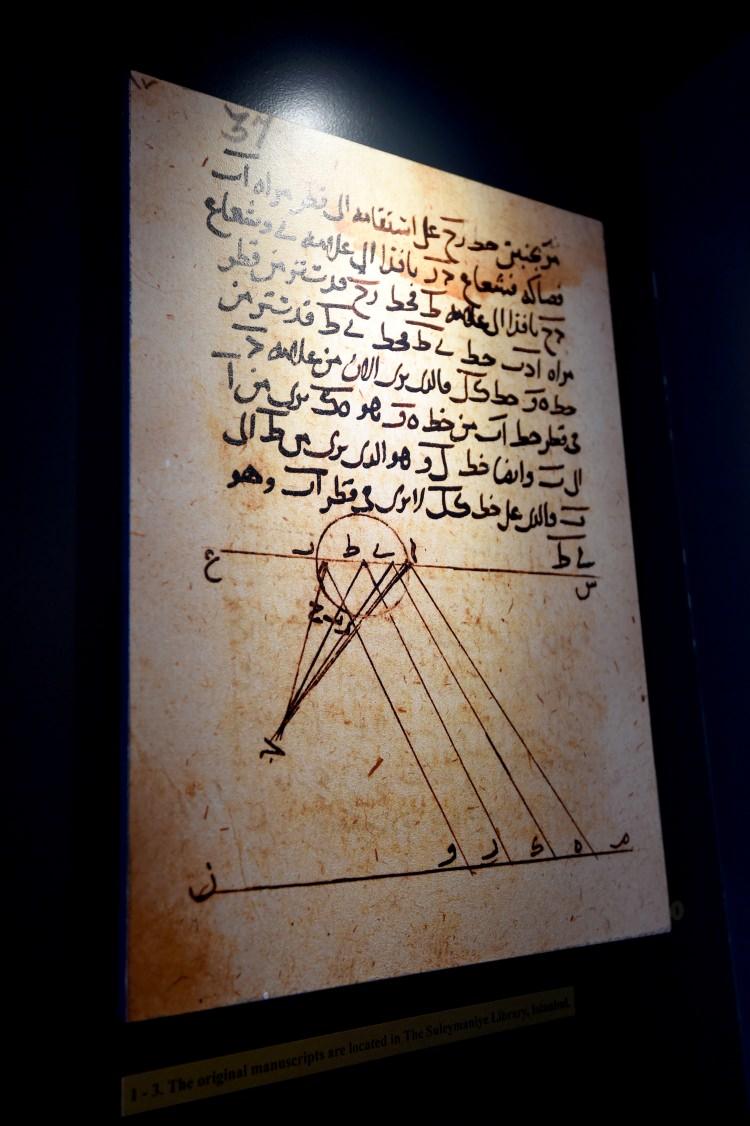 37
من جنبتي حط رح على استقامه الى قطر مراه اب
فصاكه فشعاع حر نافذا الى علامه ے وشعاع
حح نافذا الى علامه ط فخط رح قد ستر من قطر
مراه ادب خط ے ط فخط ے ط قد ستر من
خط ه و خط كل والذي يرى الان من علامه ح
في قطر خط اب من خط ه و هو ه ك يرى من ا
الى ے وايضا خط ل و هو الذي يرى من ط الى
ب والذي على خط كل لا يرى في قطر اب وهو
ے ط
ع ر ط ے ا س
ح
ز و ل ك ه م
1 - 3. The original manuscripts are located in The Suleymaniye Library, Istanbul.